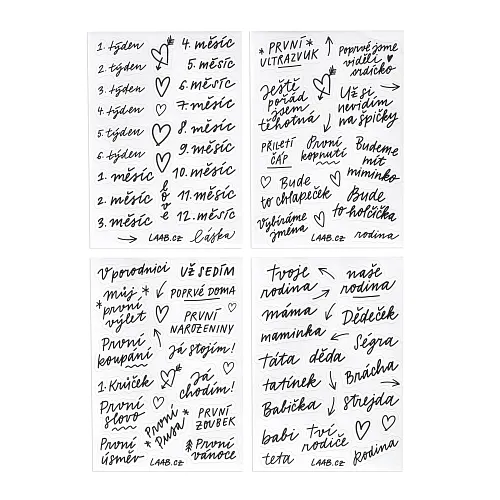 1. týden
2. týden
3. týden
4. týden
5. týden
6. týden
1. měsíc
2. měsíc
3. měsíc
4. měsíc
5. měsíc
6. měsíc
7. měsíc
8. měsíc
9. měsíc
10. měsíc
11. měsíc
12. měsíc
love
LAAB.CZ
láska
* PRVNÍ *
ULTRAZVUK
Poprvé jsme
viděli
srdíčko
Ještě
pořád
jsem
těhotná
Už si
nevidím
na špičky
PŘILETÍ
ČÁP
První
kopnutí
Budeme
mít
miminko
Bude
to chlapeček
Bude
to holčička
Vybíráme
jména
LAAB.CZ
rodina
V porodnici
UŽ SEDÍM
* Můj *
první
výlet
POPRVÉ DOMA
PRVNÍ
NAROZENINY
První
koupání
Já stojím!
1. Krůček
Já
chodím!
První
slovo
* První
Pusa *
PRVNÍ
ZOUBEK
První
úsměv
LAAB.CZ
První
vánoce
Tvoje
rodina
naše
rodina
máma
Dědeček
maminka
Ségra
táta
děda
tatínek
Brácha
Babička
strejda
babi
teta
Tví
rodiče
LAAB.CZ
Rodina